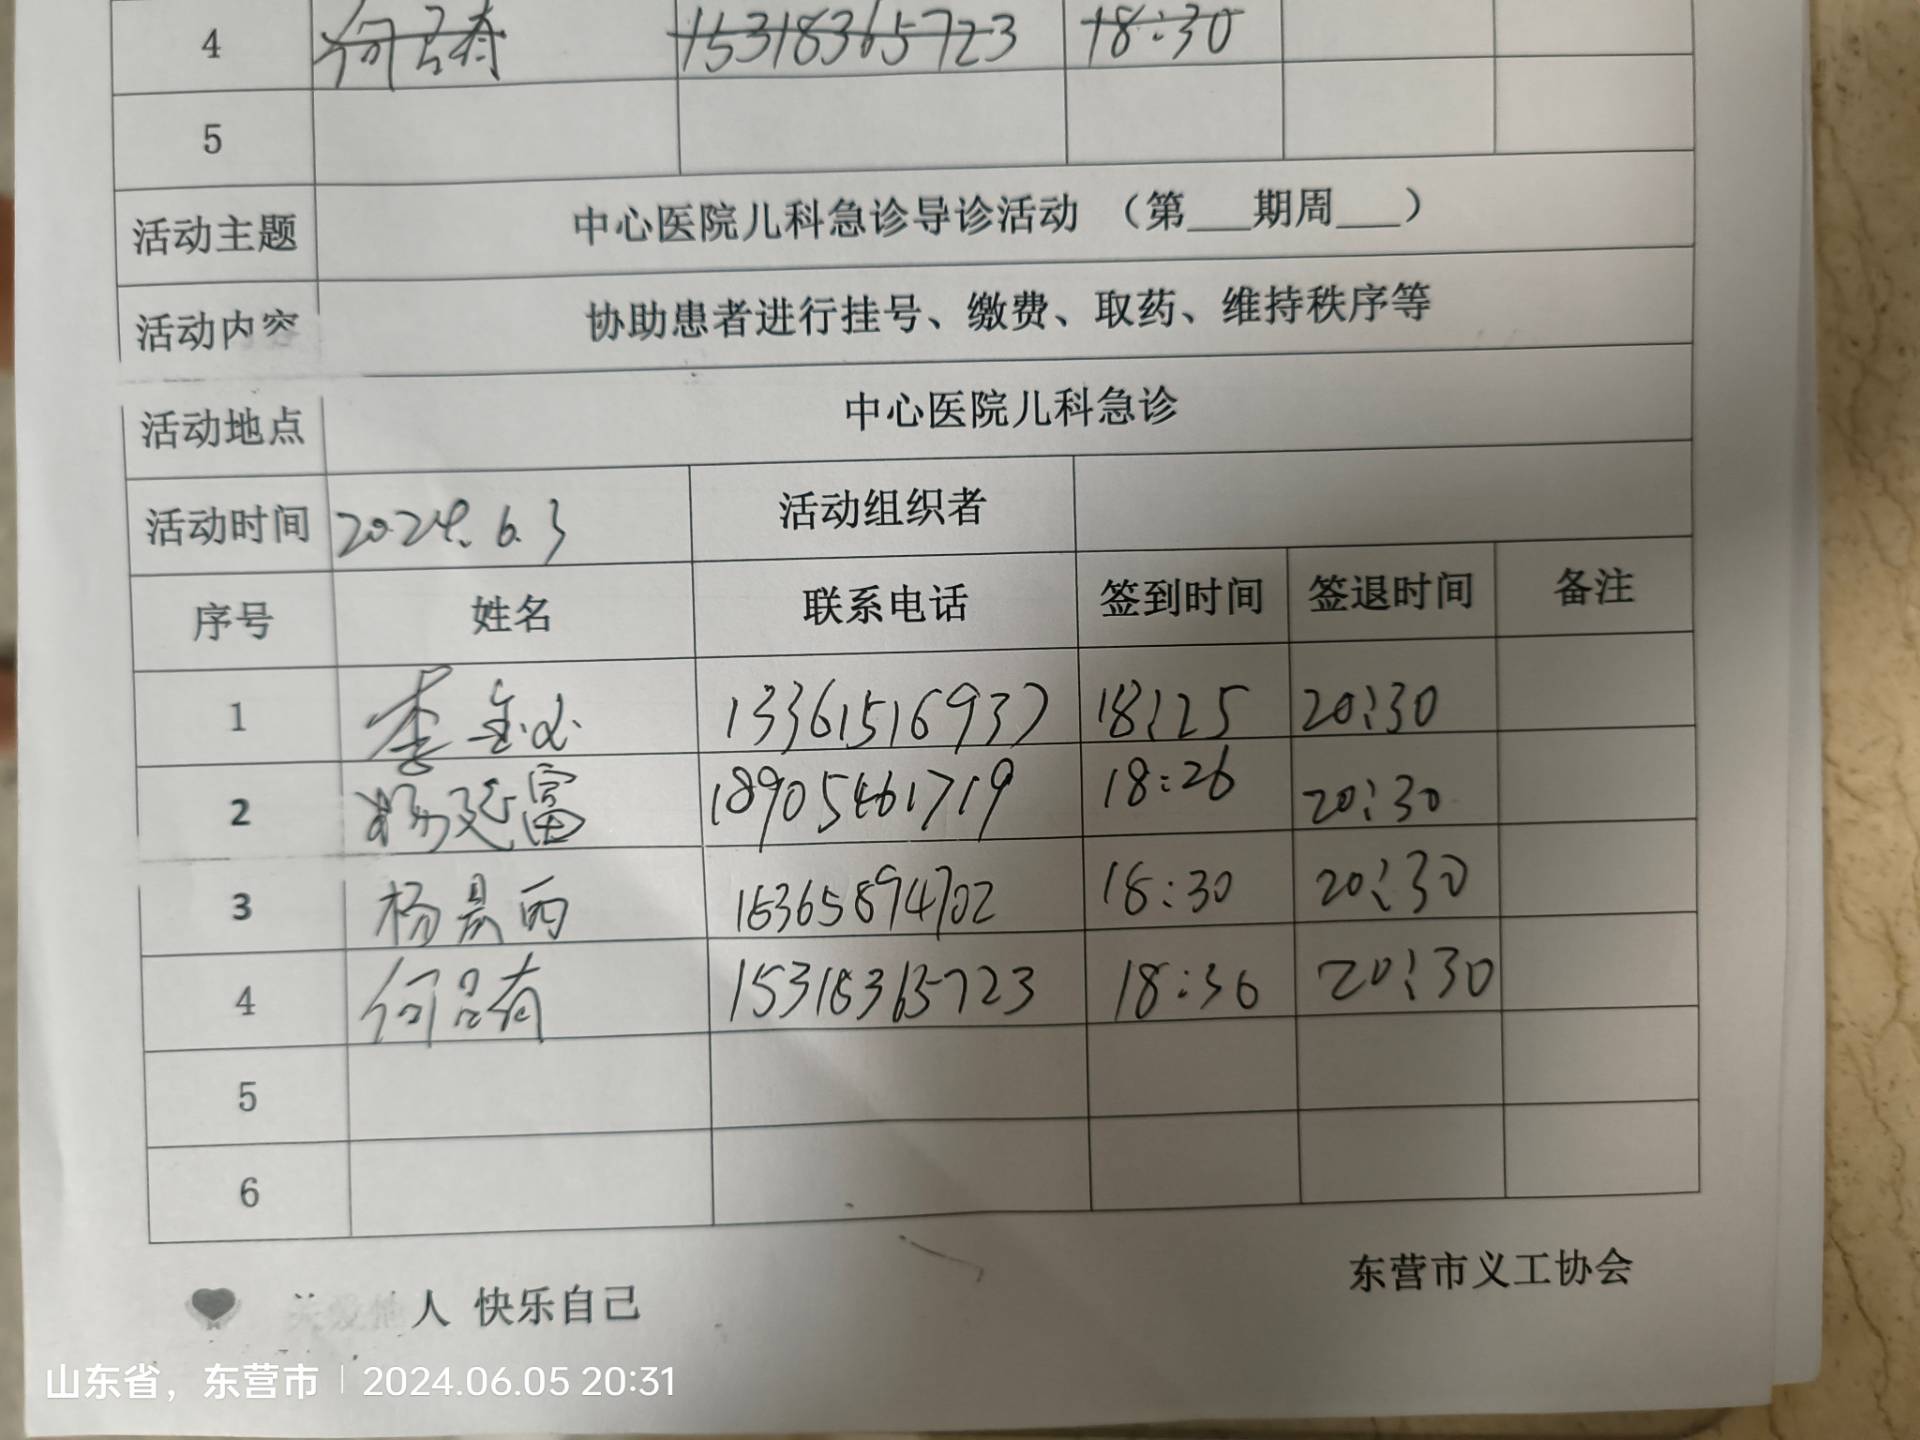 4 15318365723 18:30
5
活动主题 中心医院儿科急诊导诊活动 （第___期周___）
活动内容 协助患者进行挂号、缴费、取药、维持秩序等
活动地点 中心医院儿科急诊
活动时间 2024.6.3 活动组织者
序号 姓名 联系电话 签到时间 签退时间 备注
1 李 13361516937 18:25 20:30
2 杨延富 18905461719 18:26 20:30
3 杨晨雨 18:30 20:30
4 何 15318365723 18:30 20:30
5
6
关爱他人 快乐自己
东营市义工协会
山东省，东营市 2024.06.05 20:31